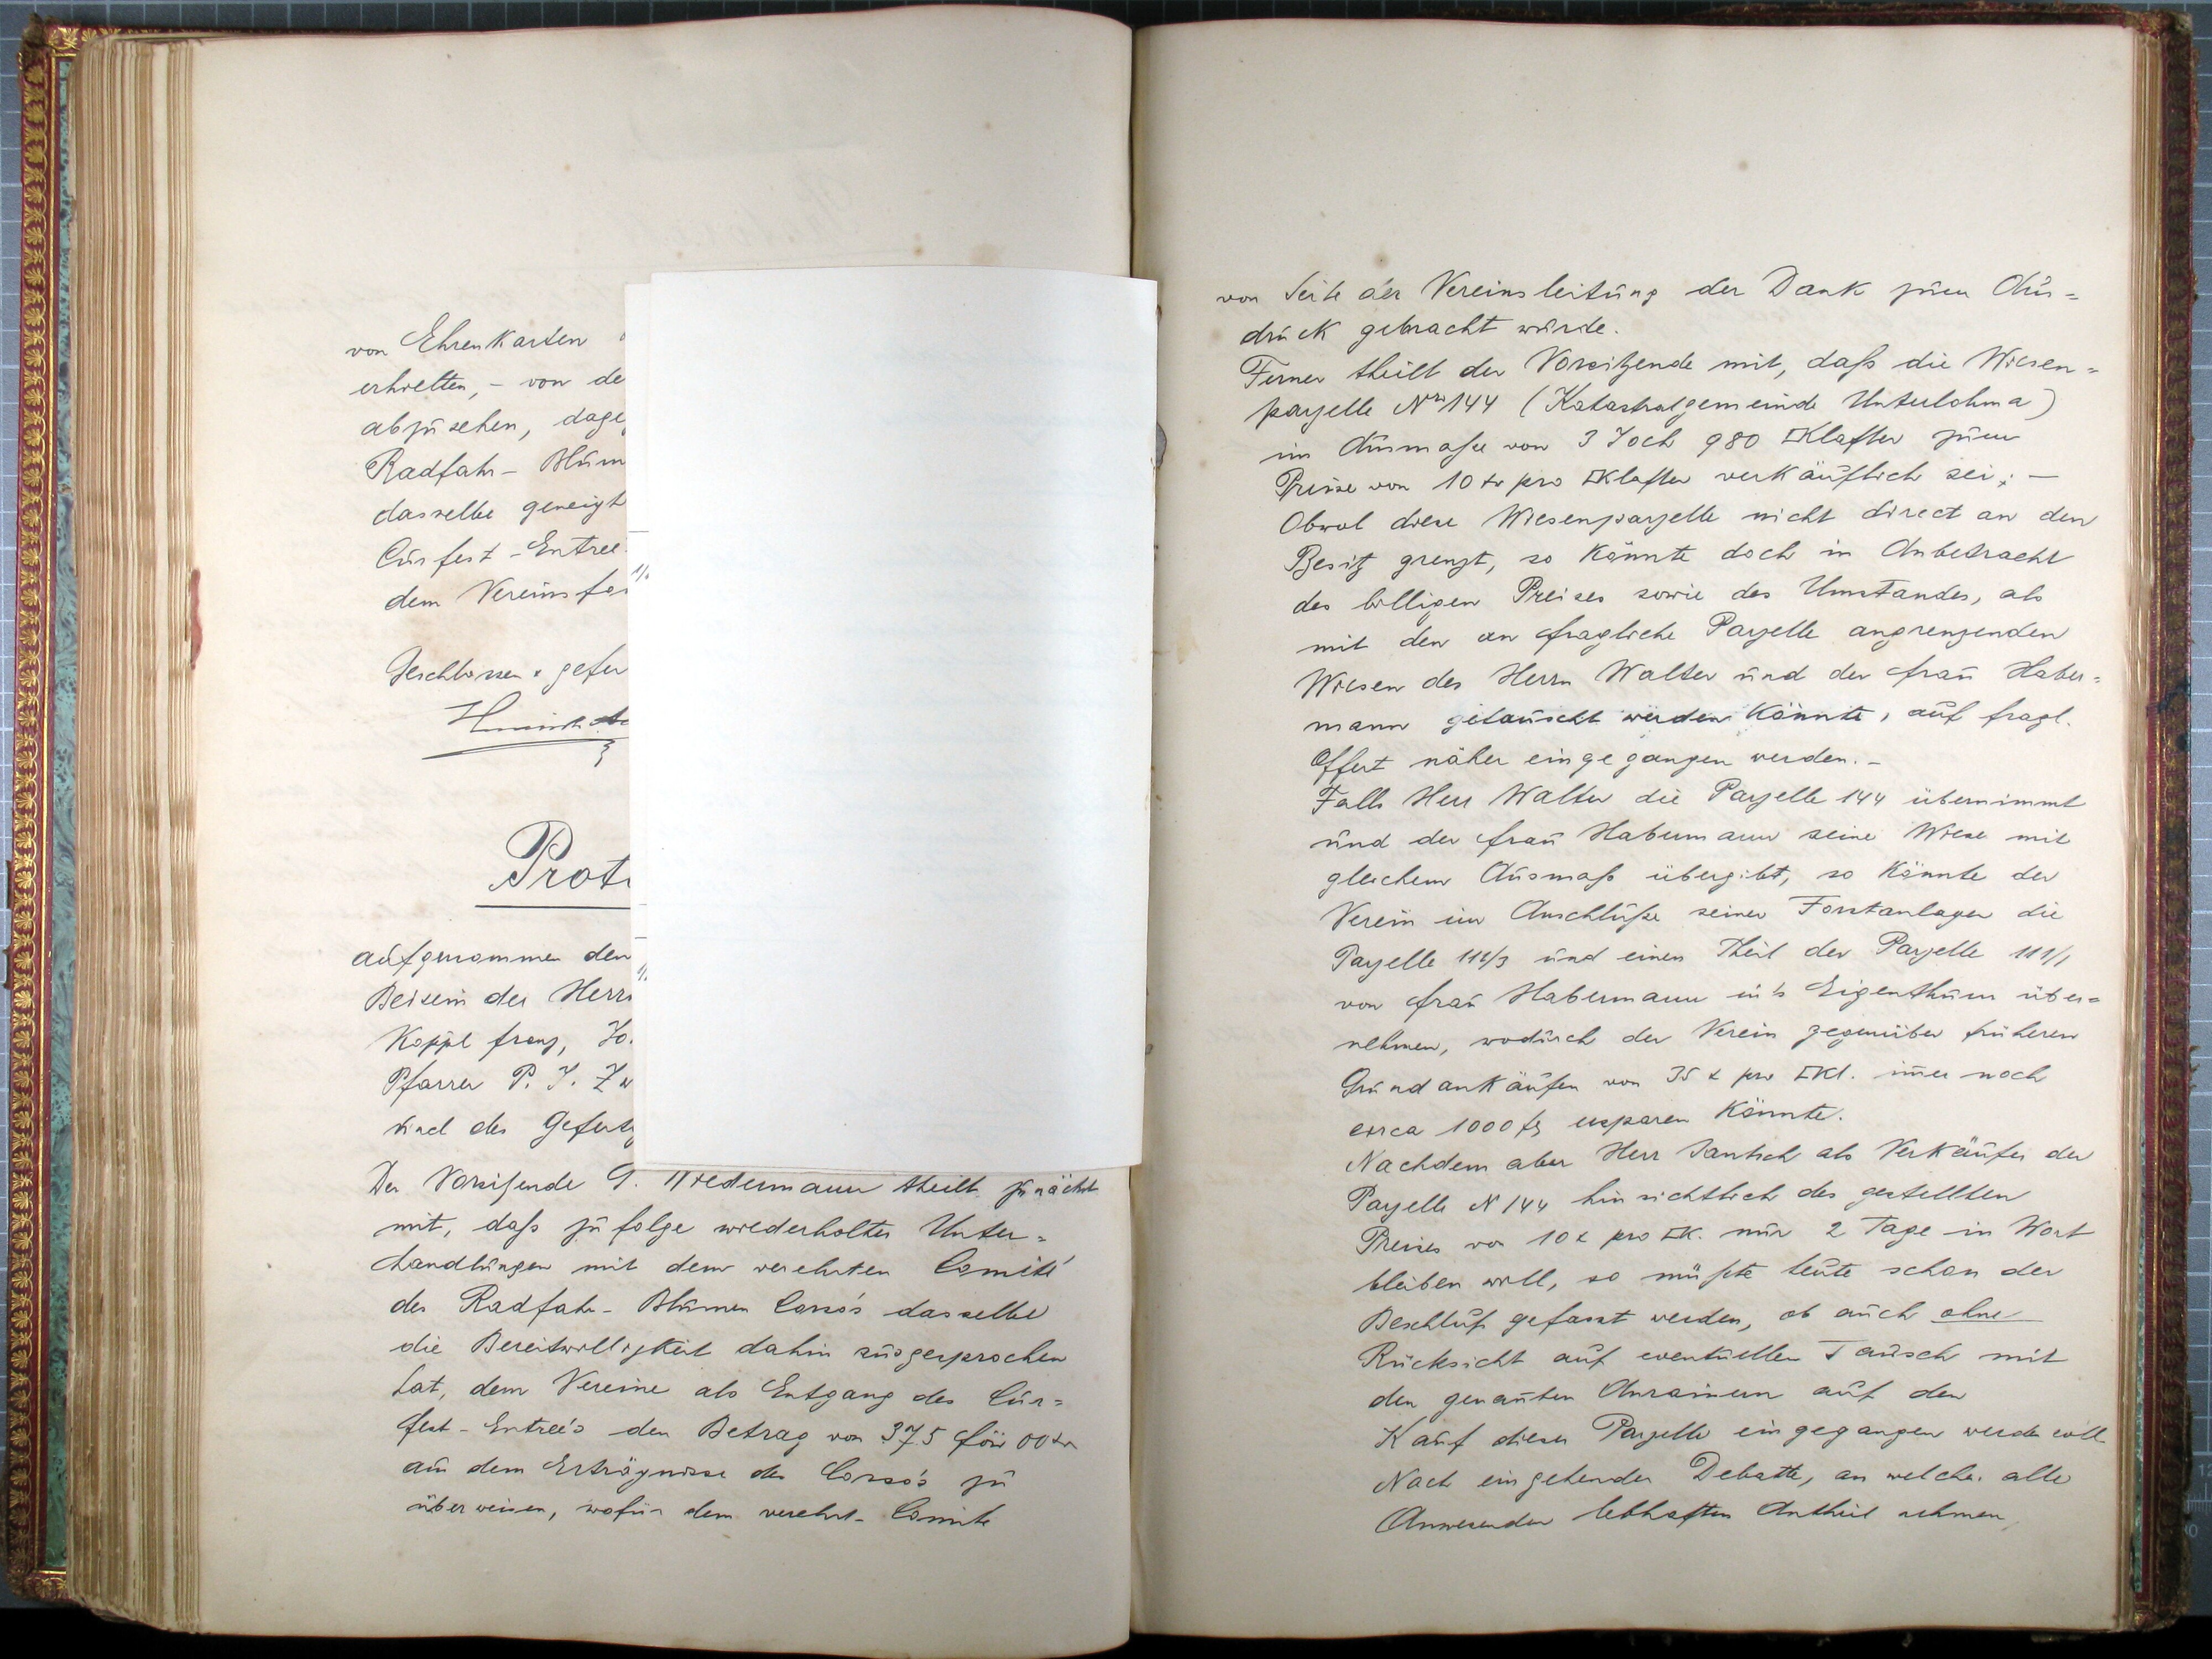 von Ehrenkarten
erhielten, – von de
abzusehen, dage
Radfahr- Blum
dasselbe geneigt
Curfest - Entree
dem Vereinsfo
Geschlossen & gefer
Prot
aufgenommen den
Beisein der Herr
Koppl Franz, Jo
Pfarrer P. J. Zw
und der Gefert
Der Vorsitzende G. Wiedermann theilt zunächst
mit, daß zu folge wiederholter Unter=
handlungen mit dem verehrten Comité
des Radfahr- Blumen Corso's dasselbe
die Bereitwilligkeit dahin ausgesprochen
hat, dem Vereine als Entgang des Cur=
fest - Entreé's den Betrag von 375 für 00 kr
aus dem Erträgnisse des Corso's zu
überweisen, wofür dem verehrt- Comite
von Seite der Vereinsleitung der Dank zum Aus=
druck gebracht wurde.
Ferner theilt der Vorsitzende mit, daß die Wiesen=
parzelle Nro 144 (Katastralgemeinde Unterlohma)
im Ausmaße von 3 Joch 980 □Klafter zum
Preise von 10 kr pro □Klafter verkäuflich sei; —
Obwol diese Wiesenparzelle nicht direct an den
Besitz grenzt, so könnte doch in Anbetracht
des billigen Preises sowie des Umstandes, als
mit den an fragliche Parzelle angrenzenden
Wiesen des Herrn Walter und der Frau Haber=
mann getauscht werden könnte, auf fragl.
Offert näher eingegangen werden. –
Falls Herr Walter die Parzelle 144 übernimmt
und der Frau Habermann seine Wiese mit
gleichem Ausmaß übergibt, so könnte der
Verein im Anschluße seiner Forstanlagen die
Parzelle 112/3 und einen Theil der Parzelle 111/1
von Frau Habermann in's Eigenthum über=
nehmen, wodurch der Verein gegenüber früheren
Grundankäufen von 35 x pro □Kl. immer noch
circa 1000 fl ersparen könnte.
Nachdem aber Herr Jantsch als Verkäufer der
Parzelle N 144 hinsichtlich des gestellten
Preises von 10 x pro □K. nur 2 Tage in Wort
bleiben will, so müßte heute schon der
Beschluß gefasst werden, ob auch ohne
Rücksicht auf eventuellen Tausch mit
den genannten Anrainern auf den
Kauf dieser Parzelle eingegangen werde soll
Nach eingehender Debatte, an welcher alle
Anwesenden lebhaften Antheil nehmen